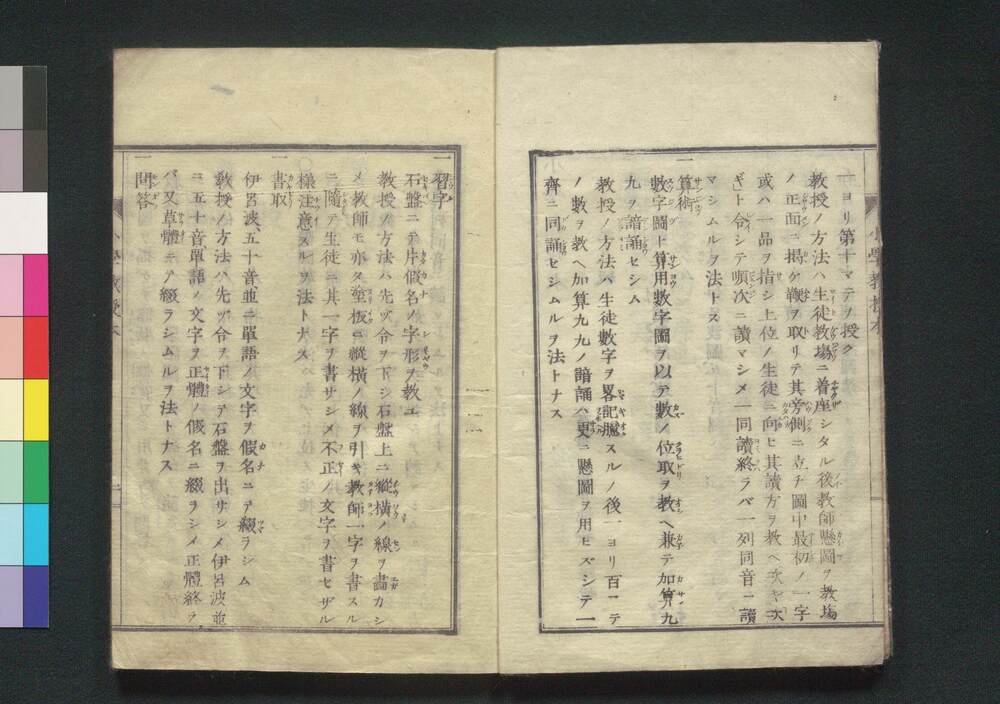 ヨリ第十マテノ授ク
教授ノ方法ハ生徒教場ニ着座シタル後教師懸圖ヲ教塲
ノ正面ニ揭ケ鞭ヲ取リテ其旁側ニ立チ圖中最初ノ一字
或ハ一品ヲ指シ上位ノ生徒ニ向ヒ其讀方ヲ教ヘ次ギ次
ギト令シテ順次ニ讀マシメ一同讀終ラバ一列同音ニ讀
マシムルヲ法トス
一算術
數字圖ト算用數字圖ヲ以テ數ノ位取ヲ教ヘ兼テ加算九
九ヲ諳誦セシム
教授ノ方法ハ生徒數字ヲ畧記臆スルノ後一ヨリ百マテ
ノ數ヲ教ヘ加算九九ノ諳誦ハ更ニ懸圖ヲ用ヒズシテ一
齊ニ同誦セシムルヲ法トナス
一習字
石盤ニテ片假名ノ字形ヲ教ユ
教授ノ方法ハ先ヅ令ヲ下シ石盤上ニ縱橫ノ線ヲ畵カシ
メ教師モ亦タ塗板ニ縱橫ノ線ヲ引キ教師一字ヲ書スル
ニ隨テ生徒ニ其一字ヲ書サシメ不正ノ文字ヲ書セザル
樣注意スルヲ法トナス
一書取
伊呂波五十音並ニ單語ノ文字ヲ假名ニテ綴ラシム
教授ノ方法ハ先ヅ令ヲ下シテ石盤ヲ出サシメ伊呂波並
ニ五十音單語ノ文字ヲ正體ノ假名ニ綴ラシメ正體終ラ
バ又草體ニテ綴ラシムルヲ法トナス
一問答
小學教授本